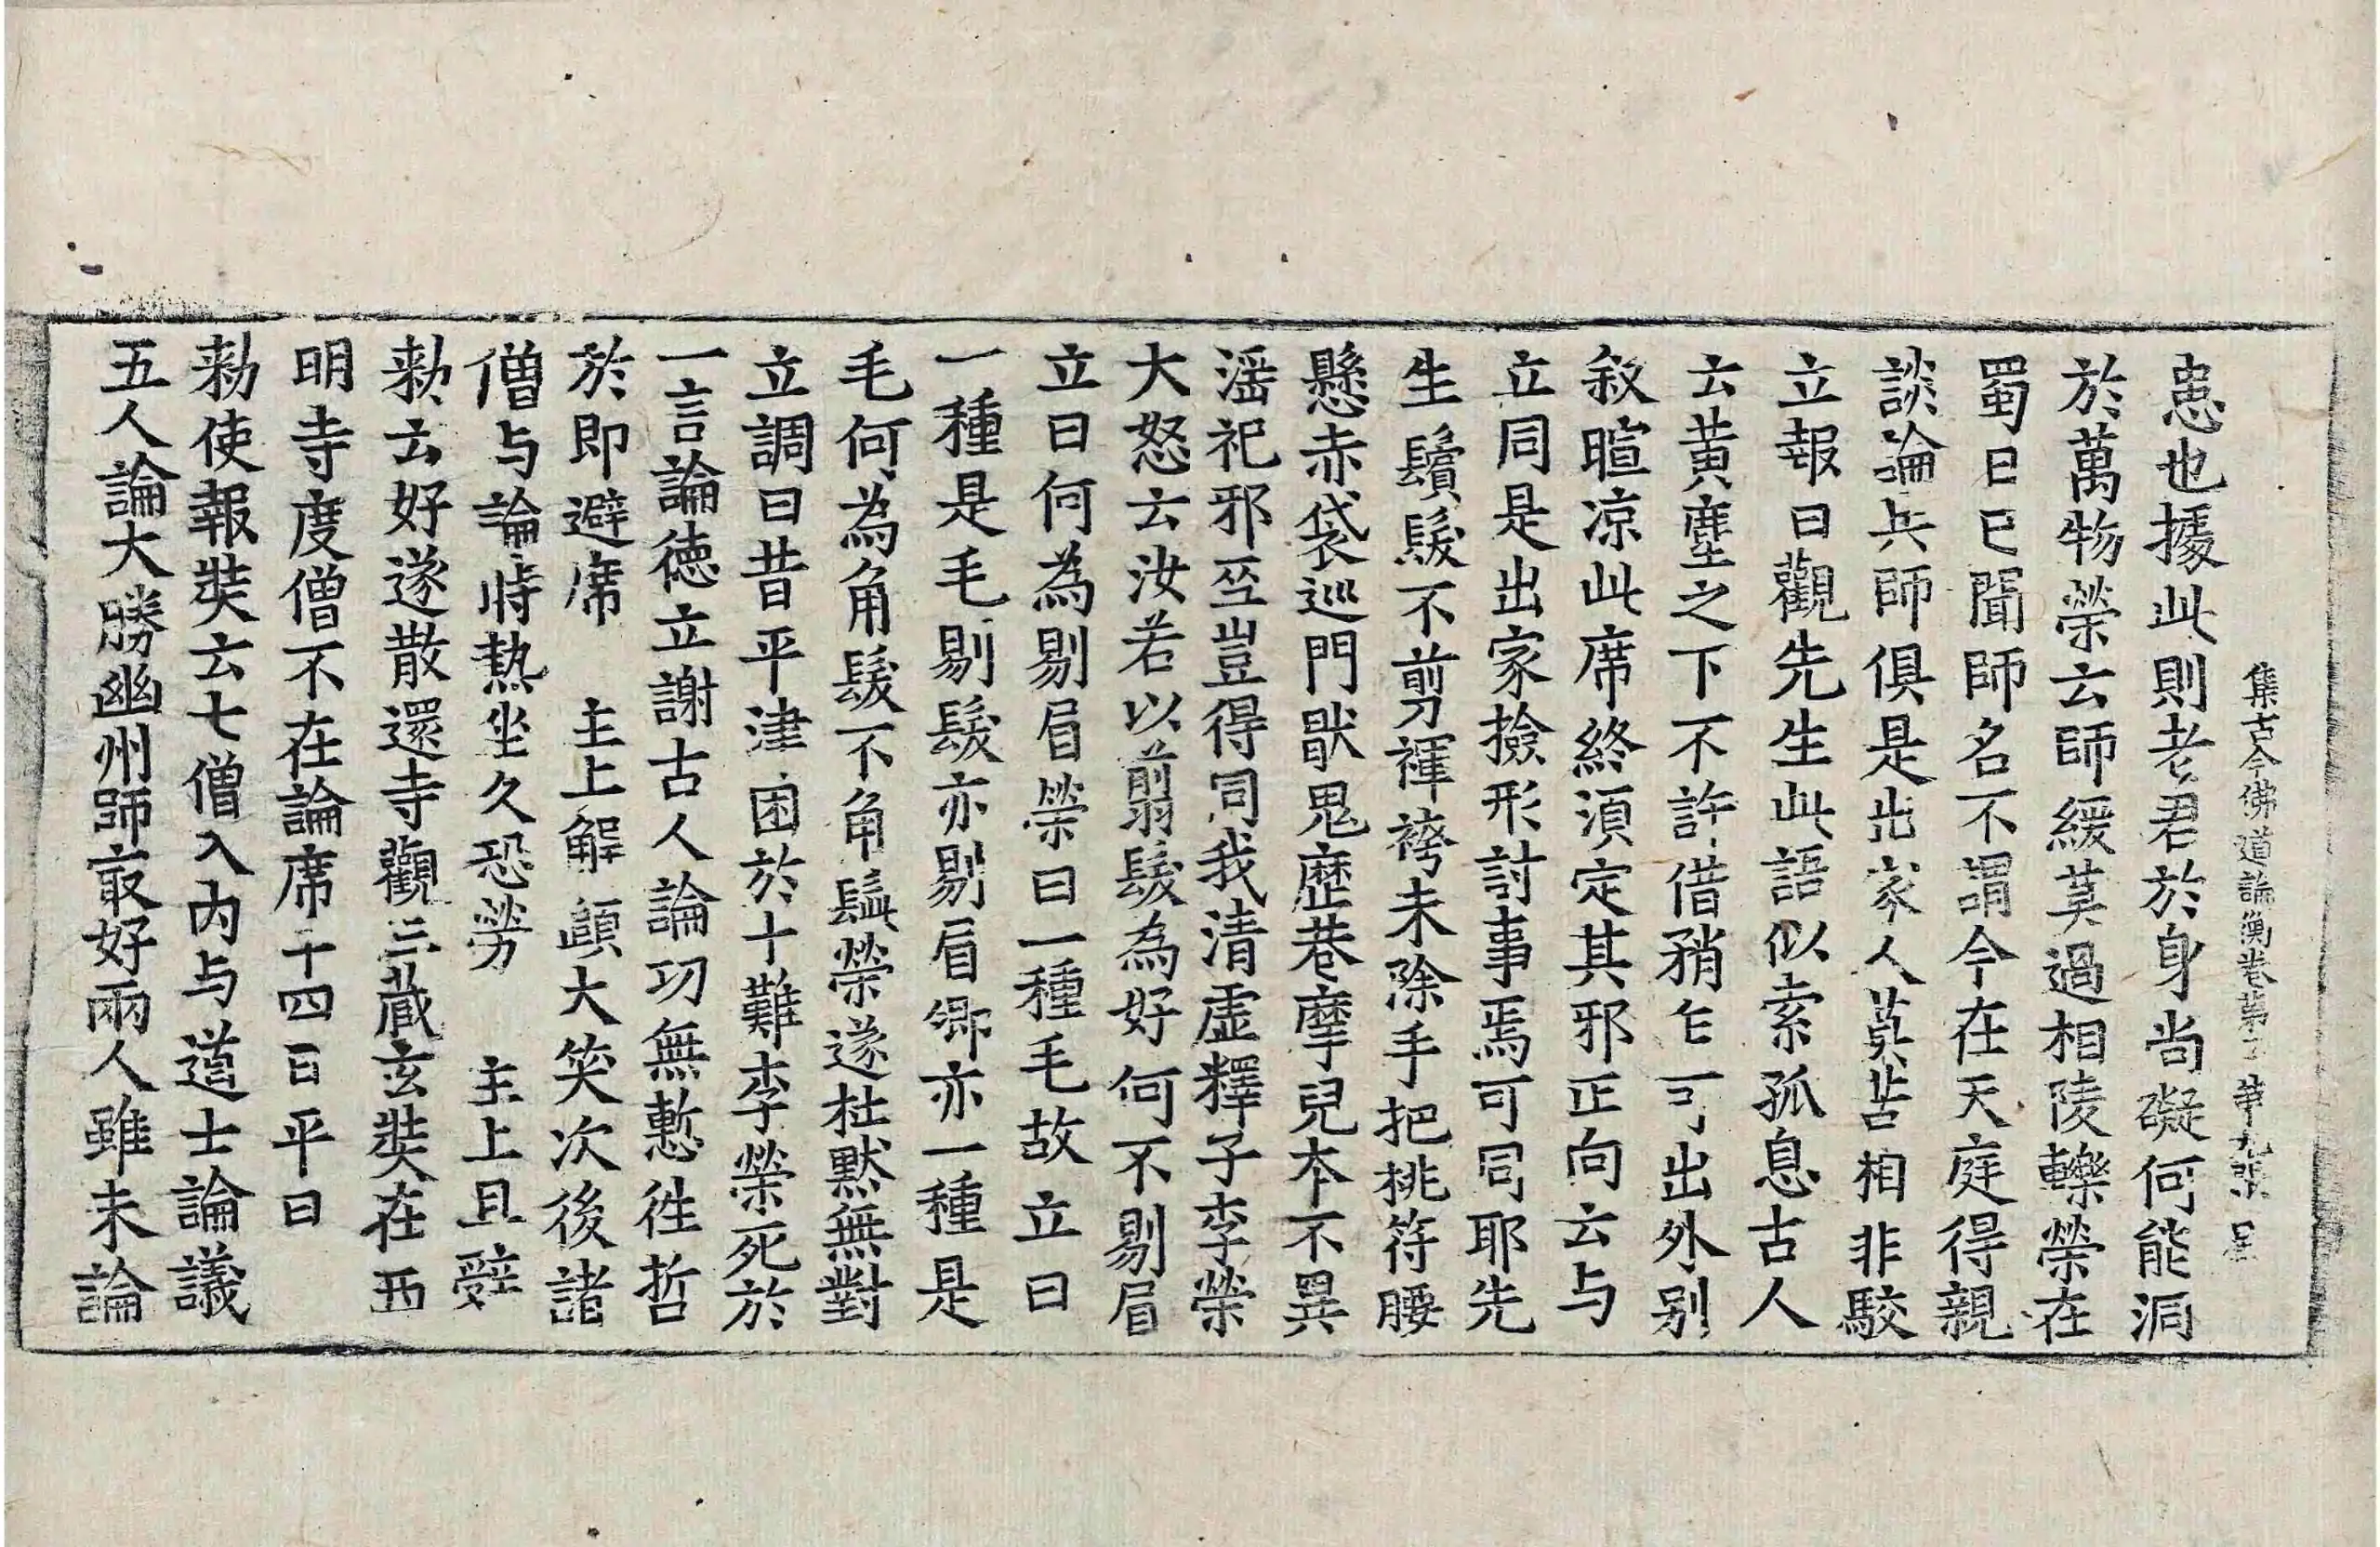 集古今佛道論衡卷第丁 第九張 星
患也據此則老君於身尚礙何能洞
於萬物榮云師緩莫過相陵轢榮在
蜀日已聞師名不謂今在天庭得親
談論共師俱是出家人莫苦相非駮
立報曰觀先生此語似索孤息古人
云黃塵之下不許借矟乍可出外別
敘暄涼此席終須定其邪正向云与
立同是出家撿形討事焉可同耶先
生鬢髮不剪褌袴未除手把桃符腰
懸赤袋巡門猒鬼歷巷摩兒夲不異
滛祀邪巫豈得同我清虛釋子李榮
大怒云汝若以翦髮為好何不剔眉
立曰何為剔眉榮曰一種毛故立曰
一種是毛剔髮亦剔眉卿亦一種是
毛何為角髮不角鬚榮遂杜默無對
立調曰昔平津困於十難李榮死於
一言論德立謝古人論功無慙徃哲
於即避席 主上解頤大笑次後諸
僧与論時熱坐久恐勞 主上且辤
勑云好遂散還寺觀三藏玄奘在西
明寺度僧不在論席十四日平旦
勑使報奘云七僧入內与道士論議
五人論大勝幽州師㝡好兩人雖未論